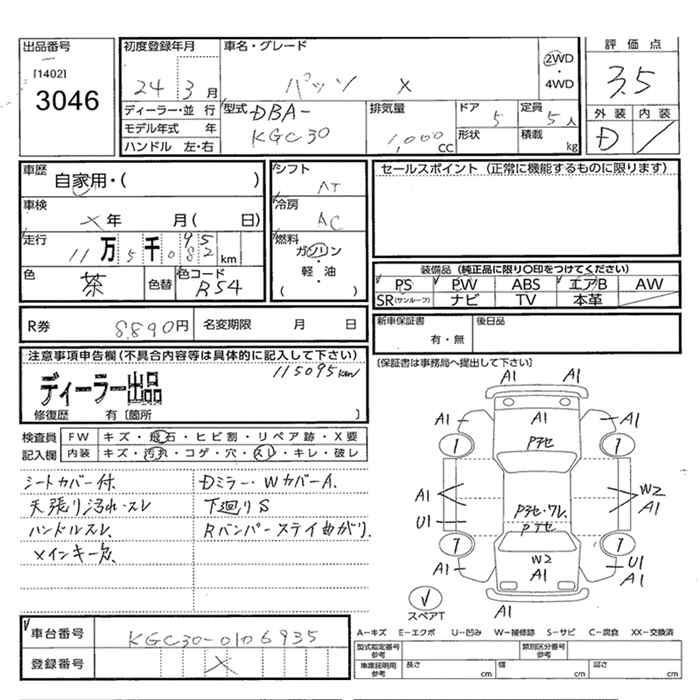 出品番号
[1402]
3046
初度登録年月
24 3月
車名・グレード
パッソ X
2WD
・
4WD
評価点
3.5
外装 内装
D /
ディーラー・並行
モデル年式 年
ハンドル 左・右
型式 DBA-
KGC30
排気量
1,000 CC
ドア 5
形状
定員 5人
積載 kg
車歴
自家用・( )
車検
×年 月( 日)
走行
11万5千082km
95
色 茶
色替
色コード
R54
シフト
AT
冷房
AC
燃料
ガソリン
・
軽・油
( )
セールスポイント (正常に機能するものに限ります)
装備品 (純正品に限り○印をつけてください)
PS PW ABS エアB AW
SR(サンルーフ) ナビ TV 本革
R券 8,890円
名変期限 月 日
新車保証書
有・無
後日品
[保証書は事務局へ提出して下さい]
注意事項申告欄(不具合内容等は具体的に記入して下さい)
115095km
ディーラー出品
修復歴 有[箇所 ]
検査員
記入欄
FW キズ・飛石・ヒビ割・リペア跡・X要
内装 キズ・汚れ・コゲ・穴・スレ・キレ・破レ
シートカバー付、
天張り汚れ・スレ
ハンドルスレ、
メインキー欠、
Dミラー・WカバーA、
下廻りS
Rバンパーステイ曲がり、
A1
A1 A1 A1
Pアセ
7 7
A1
U1
Pアセ・ワレ、
Pアセ
W2
A1
7 7
A1
W2
A1
U1
A1
スペアT
A-キズ E-エクボ U-凹み W-補修跡 S-サビ C-腐食 XX-交換済
車台番号 KGC30-0106935
登録番号 ×
型式指定番号
参考
類別区分番号
参考
車庫証明用
参考
長さ cm
幅 cm
高さ cm